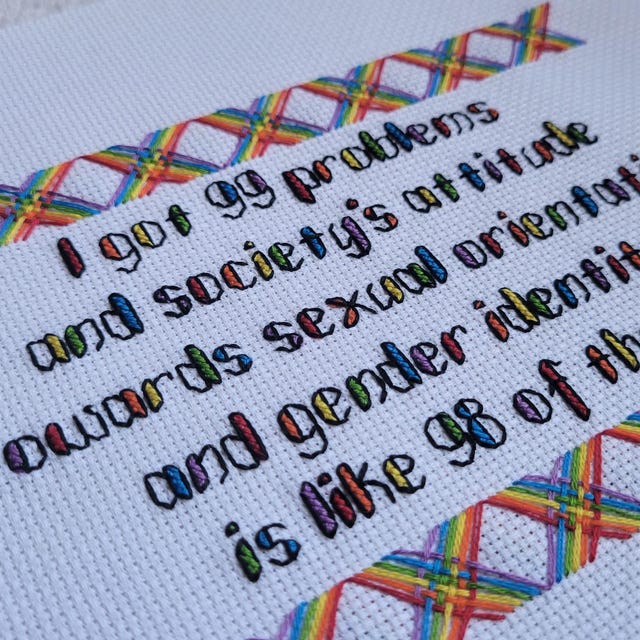 I got 99 problems
and society's attitude
owards sexual orientati
and gender identit
is like 98 of th